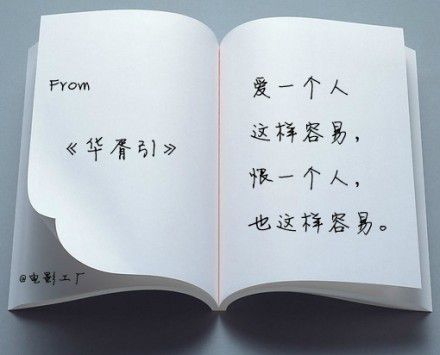 From
《华胥引》
@电影工厂
爱一个人
这样容易,
恨一个人,
也这样容易。